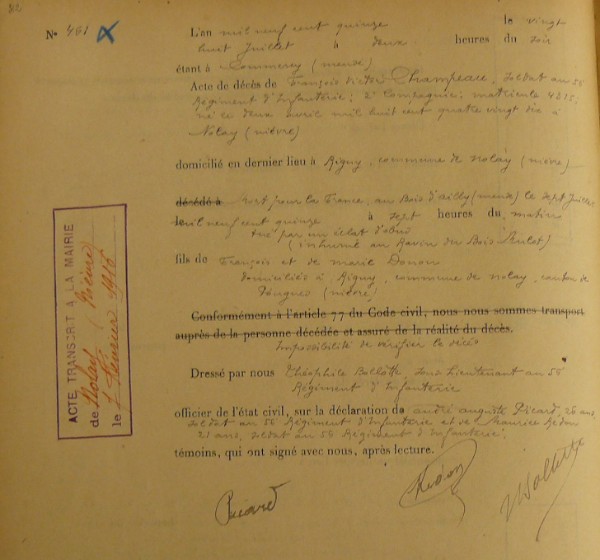 52
N° 461
L'an mil neuf cent quinze le vingt
huit Juillet à deux heures du soir
étant à Commercy (meuse)
Acte de décès de François Victor Champeaux, soldat au 56
Régiment d'Infanterie; 2e Compagnie; matricule
né le deux avril mil huit cent quatre vingt dix à
Nolay (nièvre)
domicilié en dernier lieu à Rigny, commune de nolay (nièvre)
décédé à mort pour la France, au Bois d'Ailly (meuse) le sept Juillet
le mil neuf cent quinze à sept heures du matin
tué par un éclat d'obus
(inhumé au Ravin du Bois Brulot)
fils de François et de marie Donon
domiciliés à Rigny, commune de nolay, canton de
Pougues (nièvre)
Conformément à l'article 77 du Code civil, nous nous sommes transport
auprès de la personne décédée et assuré de la réalité du décès.
Impossibilité de vérifier le décès
Dressé par nous Théophile Sous Lieutenant au 56
Régiment d'Infanterie
officier de l'état civil, sur la déclaration de andré auguste Picard, 26 ans,
soldat au 56 Régiment d'Infanterie et de Maurice Redon
21 ans, soldat au 56 Régiment d'Infanterie,
témoins, qui ont signé avec nous, après lecture.
Picard Redon
ACTE TRANSCRIT A LA MAIRIE
de Nolay (Nièvre)
le 1 Février 1916